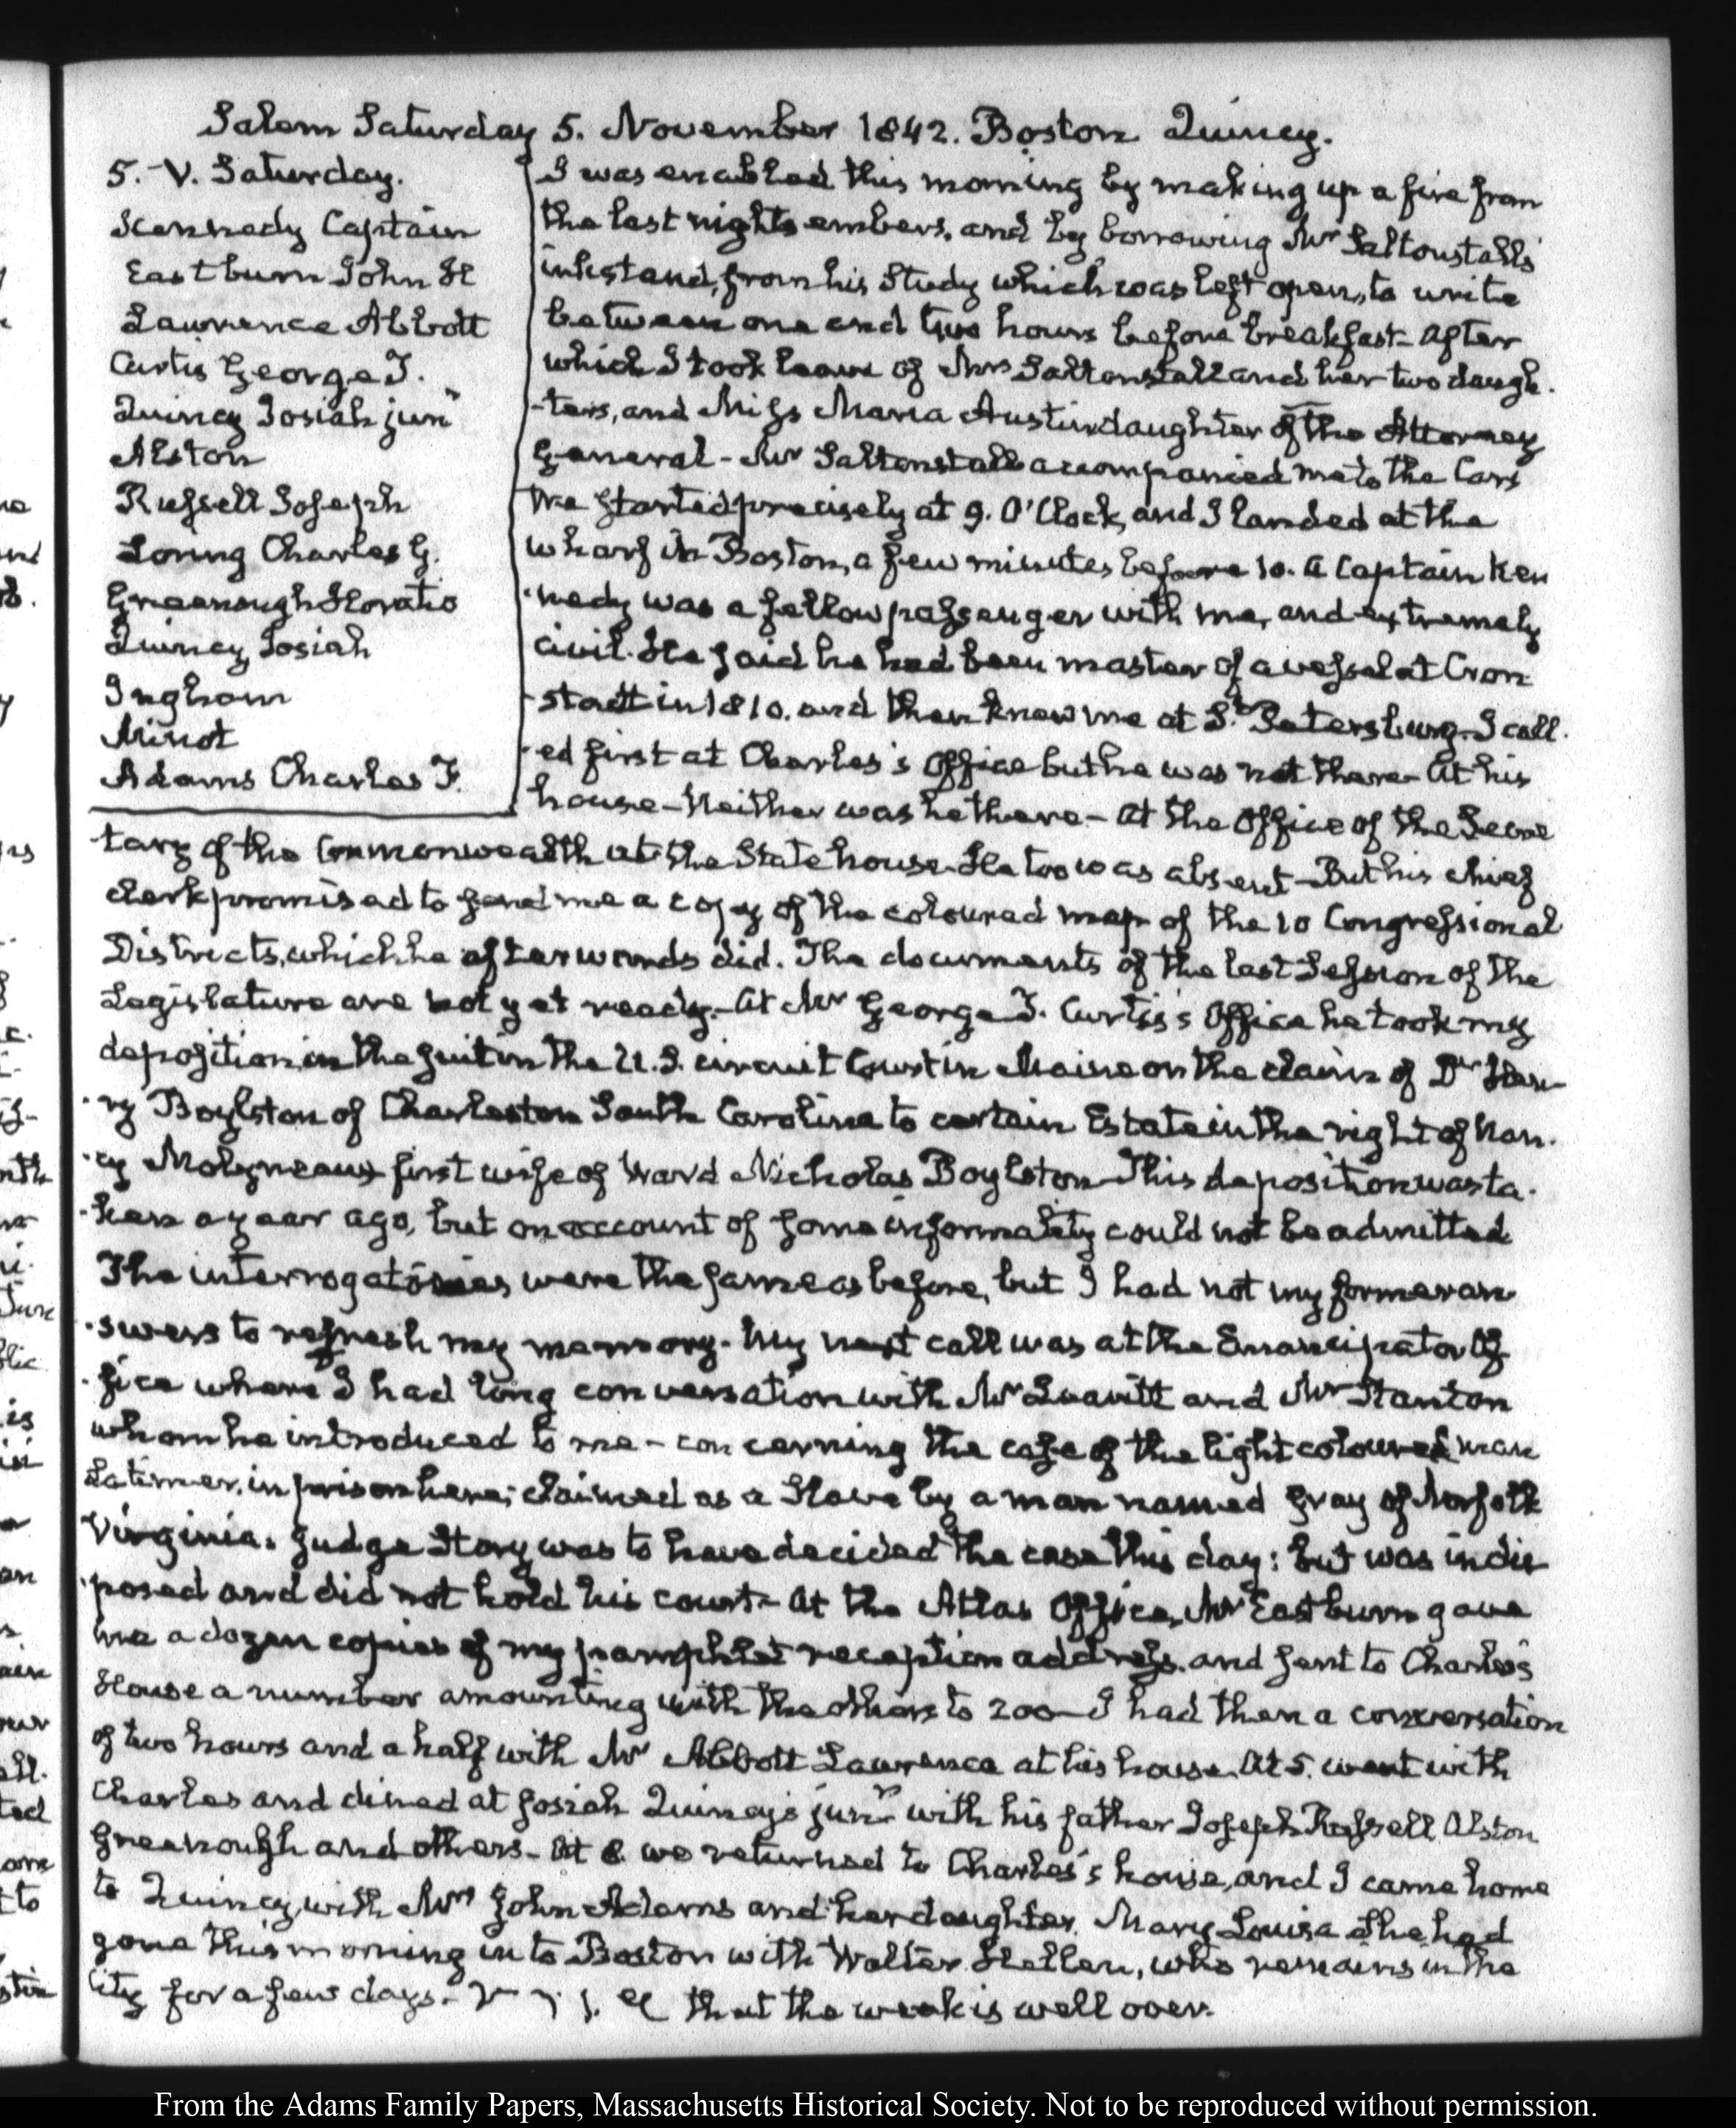 Salem Saturday 5. November 1842. Boston Quincy.
5. V. Saturday.
Kennedy Captain
Eastburn John H
Lawrence Abbott
Curtis George T.
Quincy Josiah junr
Alston
Russell Joseph
Loring Charles G.
Greenough Horatio
Quincy Josiah
Ingham
Minot
Adams Charles F.
I was enabled this morning by making up a fire from
the last nights embers, and by borrowing Mr Saltonstalls
inkstand, from his Study which was left open, to write
between one and two hours before breakfast- After
which I took leave of Mrs Saltonstall and her two daugh-
-ters, and Miss Maria Austin daughter of the Attorney
General- Mr Saltonstall accompanied me to the Cars
We started precisely at 9. O'Clock, and I landed at the
wharf in Boston, a few minutes before 10. A Captain Ken
-nedy was a fellow passenger with me, and extremely
civil. He said he had been master of a vessel at Cron
-stadt in 1810. and then knew me at St. Petersburg- I call-
-ed first at Charles's Office but he was not there- At his
house- Neither was he there- At the Office of the Secre
tary of the Commonwealth at the State house. He too was absent- But his chief
clerk promised to send me a copy of the coloured map of the 10 Congressional
Districts, which he afterwards did. The documents of the last Session of the
Legislature are not yet ready.- At Mr George T. Curtis's Office he took my
deposition in the suit in the U.S. circuit Court in Maine on the claim of Dr Hen-
-ry Boylston of Charleston South Carolina to certain Estate in the right of Nan-
-cy Molyneaux first wife of Ward Nicholas Boylston- This deposition was ta-
-ken a year ago, but on account of some informality could not be admitted
The interrogatories were the same as before, but I had not my former an
-swers to refresh my memory. My next call was at the Emancipator Of-
-fice where I had long conversation with Mr Leavitt and Mr Stanton
whom he introduced to me- concerning the case of the light coloured man
Latimer, in prison here; claimed as a Slave by a man named Gray of Norfolk
Virginia. Judge Story was to have decided the case this day: but was indis
-posed and did not hold his court- At the Atlas Office, Mr Eastburn gave
me a dozen copies of my pamphlet reception address, and sent to Charles's
House a number amounting with the others to 200- I had then a conversation
of two hours and a half with Mr Abbott Lawrence at his house. At 5. went with
Charles and dined at Josiah Quincy's junr with his father Joseph Russell, Alston
Greenough and others- At 8. we returned to Charles's house, and I came home
to Quincy, with Mrs John Adams and her daughter, Mary Louisa She had
gone this morning in to Boston with Walter Hellen, who remains in the
City for a few days.- that the week is well over.
From the Adams Family Papers, Massachusetts Historical Society. Not to be reproduced without permission.